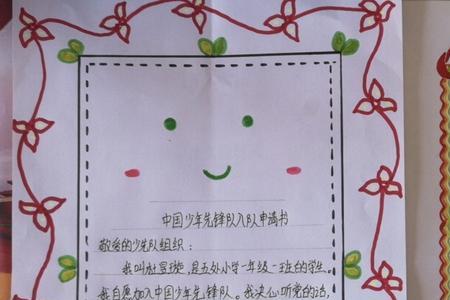 中国少年先锋队入队申请书
敬爱的少先队组织：
我叫杜宣璇，是五处小学一年级一班的学生。
我自愿加入中国少年先锋队。我决心听党的话，